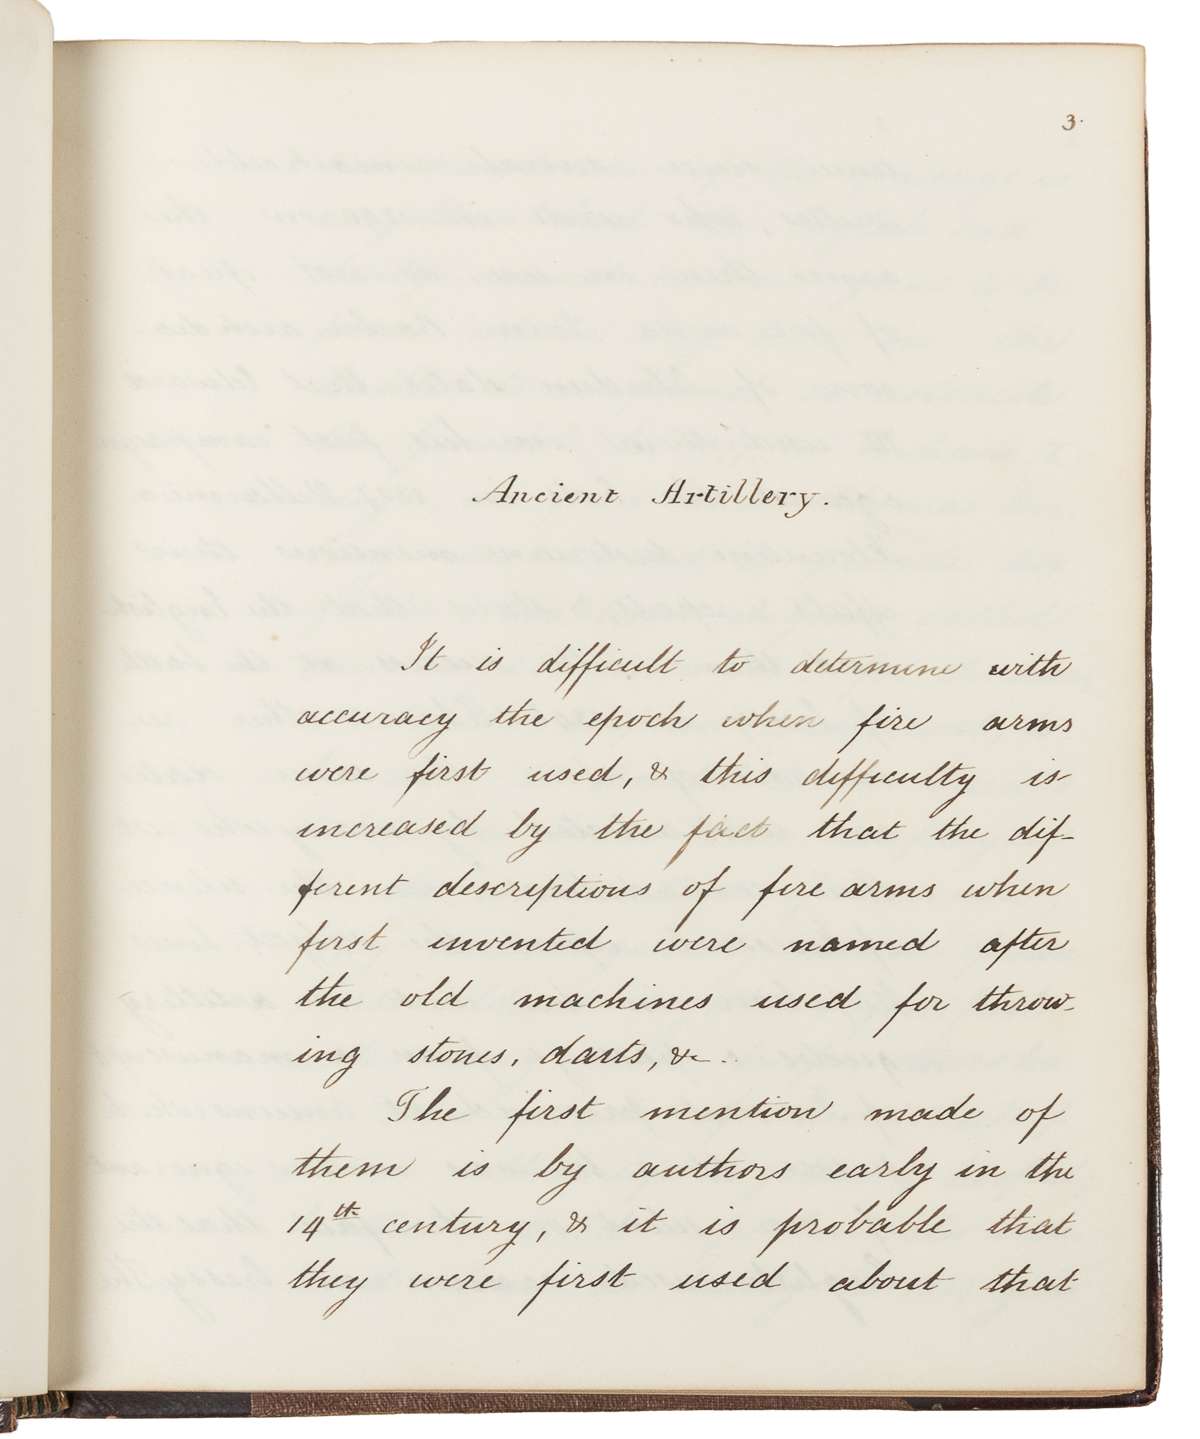 3.
Ancient Artillery.
It is difficult to determine with
accuracy the epoch when fire arms
were first used, & this difficulty is
increased by the fact that the dif-
ferent descriptions of fire arms when
first invented were named after
the old machines used for throw-
ing stones, darts, &c.
The first mention made of
them is by authors early in the
14th century, & it is probable that
they were first used about that